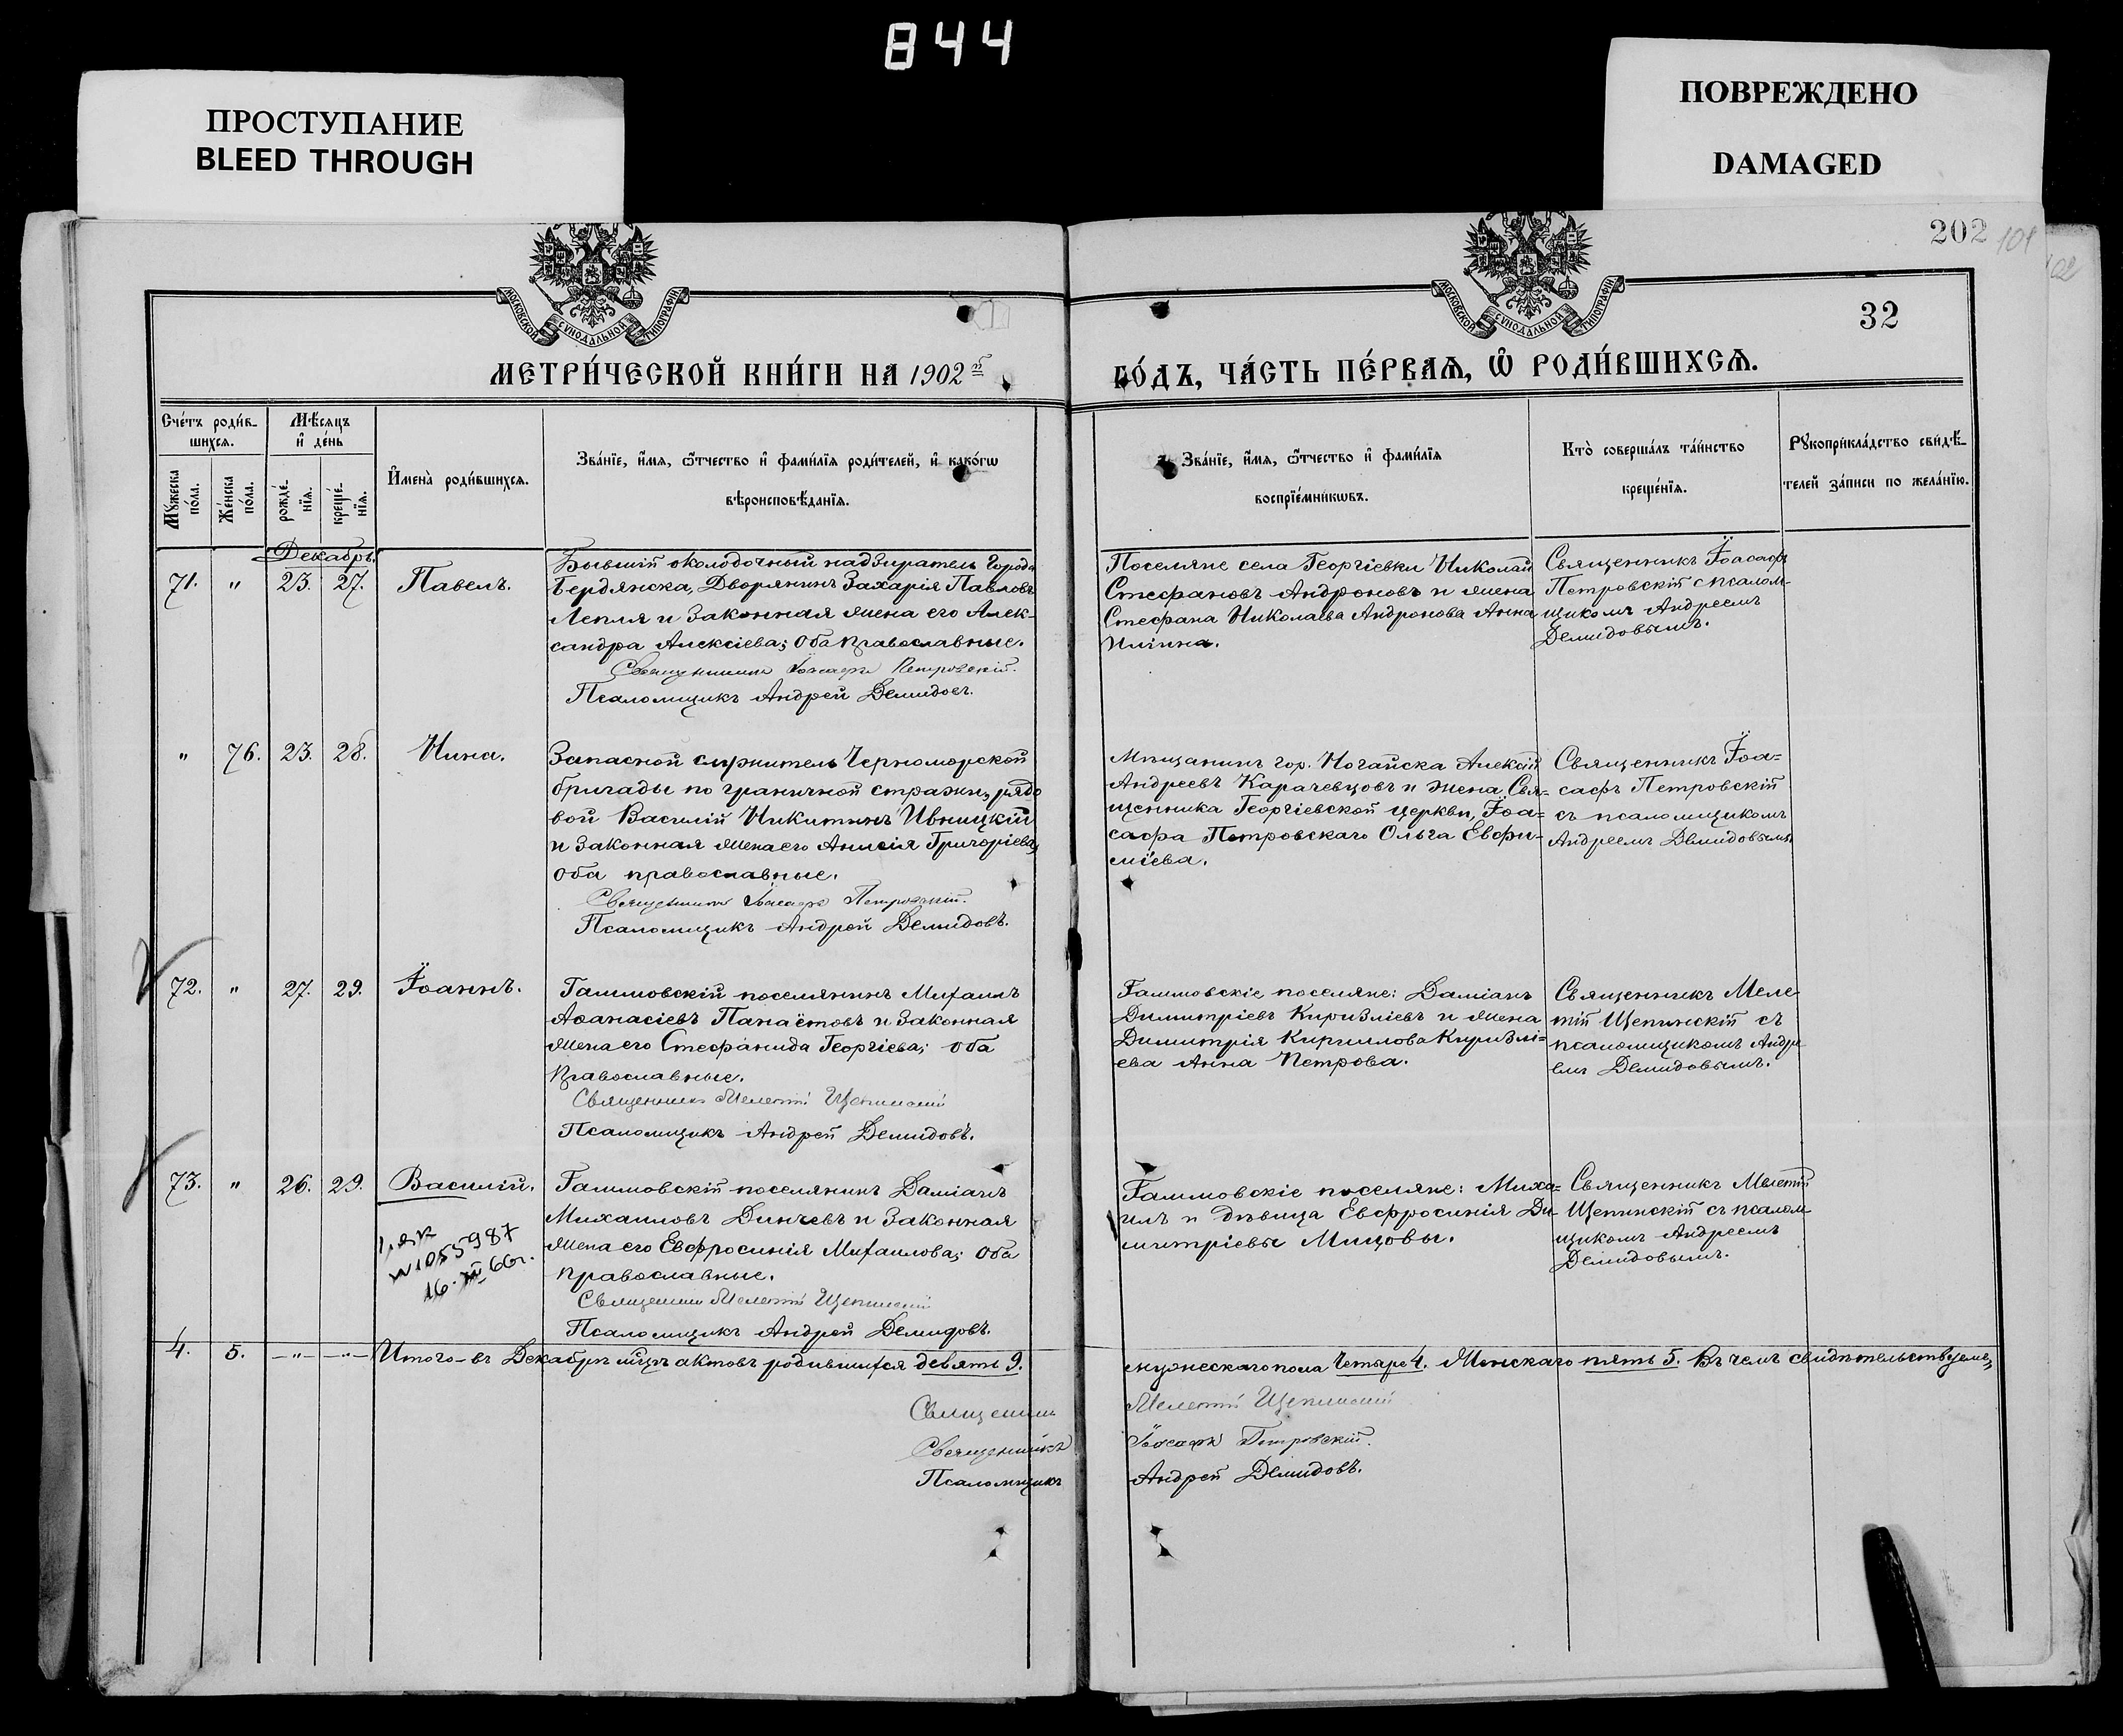 844
ПРОСТУПАНИЕ
BLEED THROUGH
ПОВРЕЖДЕНО
DAMAGED
202 101
102
МОСКОВСКОЙ СУНОДАЛЬНОЙ ТИПОГРАФІИ
МОСКОВСКОЙ СУНОДАЛЬНОЙ ТИПОГРАФІИ
32
МЕТРИ́ЧЕСКОЙ КНИ́ГИ НА 1902й
ГО́ДЪ, ЧА́СТЬ ПЕ́РВАЯ, Ѡ҆ РОДИ́ВШИХСЯ.
Сче́тъ роди́в-
шихся.
Мѣ́сяцъ
и҆ де́нь
Мꙋ́жеска
по́ла.
Же́нска
по́ла.
рожде́-
нїя.
креще́-
нїя.
И҆мена̀ роди́вшихся.
Зва́нїе, и҆́мя, ѻ҆́тчество и҆ фами́лїя роди́телей, и҆ како́гѡ
вѣроисповѣ́данїя.
Зва́нїе, и҆́мя, ѻ҆́тчество и҆ фами́лїя
воспрїе́мникѡвъ.
Кто̀ соверша́лъ та́инство
креще́нїя.
Рꙋкоприкла́дство свидѣ́-
телей за́писи по жела́нїю.
Декабрь.
71. " 23. 27. Павелъ.
Бывшій околодочный надзиратель города
Бердянска, Дворянинъ Захарія Павловъ
Лепля и законная жена его Алек-
сандра Алексіева; оба православные.
Священникъ Іоасафъ Петровскій.
Псаломщикъ Андрей Демидовъ.
Поселяне села Георгіевки Николай
Стефановъ Андроновъ и жена
Стефана Николаева Андронова Анна
Иліина.
Священникъ Іоасафъ
Петровскій с псалом-
щикомъ Андреемъ
Демидовымъ.
" 76. 23. 28. Нина.
Запасной служитель Черноморской
бригады по граничной стражи, рядо
вой Василій Никитинъ Ивницкій
и законная жена его Анисія Григоріева,
оба православные.
Священникъ Іоасафъ Петровскій.
Псаломщикъ Андрей Демидовъ.
Мѣщанинъ гор. Ногайска Алексій
Андреевъ Карачевцовъ и жена Свя-
щенника Георгіевской церкви, Іоа-
сафа Петровскаго Ольга Евфи-
міева.
Священникъ Іоа-
сафъ Петровскій
съ псаломщикомъ
Андреемъ Демидовымъ
72. " 27. 29. Іоаннъ.
Гаммовскій поселянинъ Михаилъ
Аѳанасіевъ Панаётовъ и законная
жена его Стефанида Георгіева; оба
православные.
Священникъ Мелетій Щепинскій
Псаломщикъ Андрей Демидовъ.
Гаммовскіе поселяне: Даміанъ
Димитріевъ Киризліевъ и жена
Димитрія Кириллова Киризлі-
ева Анна Петрова.
Священникъ Меле-
тій Щепинскій съ
псаломщикомъ Андре
емъ Демидовымъ.
73. " 26. 29. Василій.
№1055987
16. XII 66г.
Гаммовскій поселянинъ Даміанъ
Михаиловъ Динчевъ и законная
жена его Евфросинія Михаилова; оба
православные.
Священникъ Мелетій Щепинскій
Псаломщикъ Андрей Демидовъ.
Гаммовскіе поселяне: Миха-
илъ и дѣвица Евфросинія Ди-
митріевы Мицовы.
Священникъ Мелетій
Щепинскій съ псалом
щикомъ Андреемъ
Демидовымъ.
4. 5. —"— —"— Итого въ Декабрѣ мцѣ актовъ родившихся девять 9.
мужескаго пола четыре 4. Женскаго пять 5. Въ чемъ свидѣтельствуемъ,
Священникъ Мелетій Щепинскій
Священникъ Іоасафъ Петровскій.
Псаломщикъ Андрей Демидовъ.